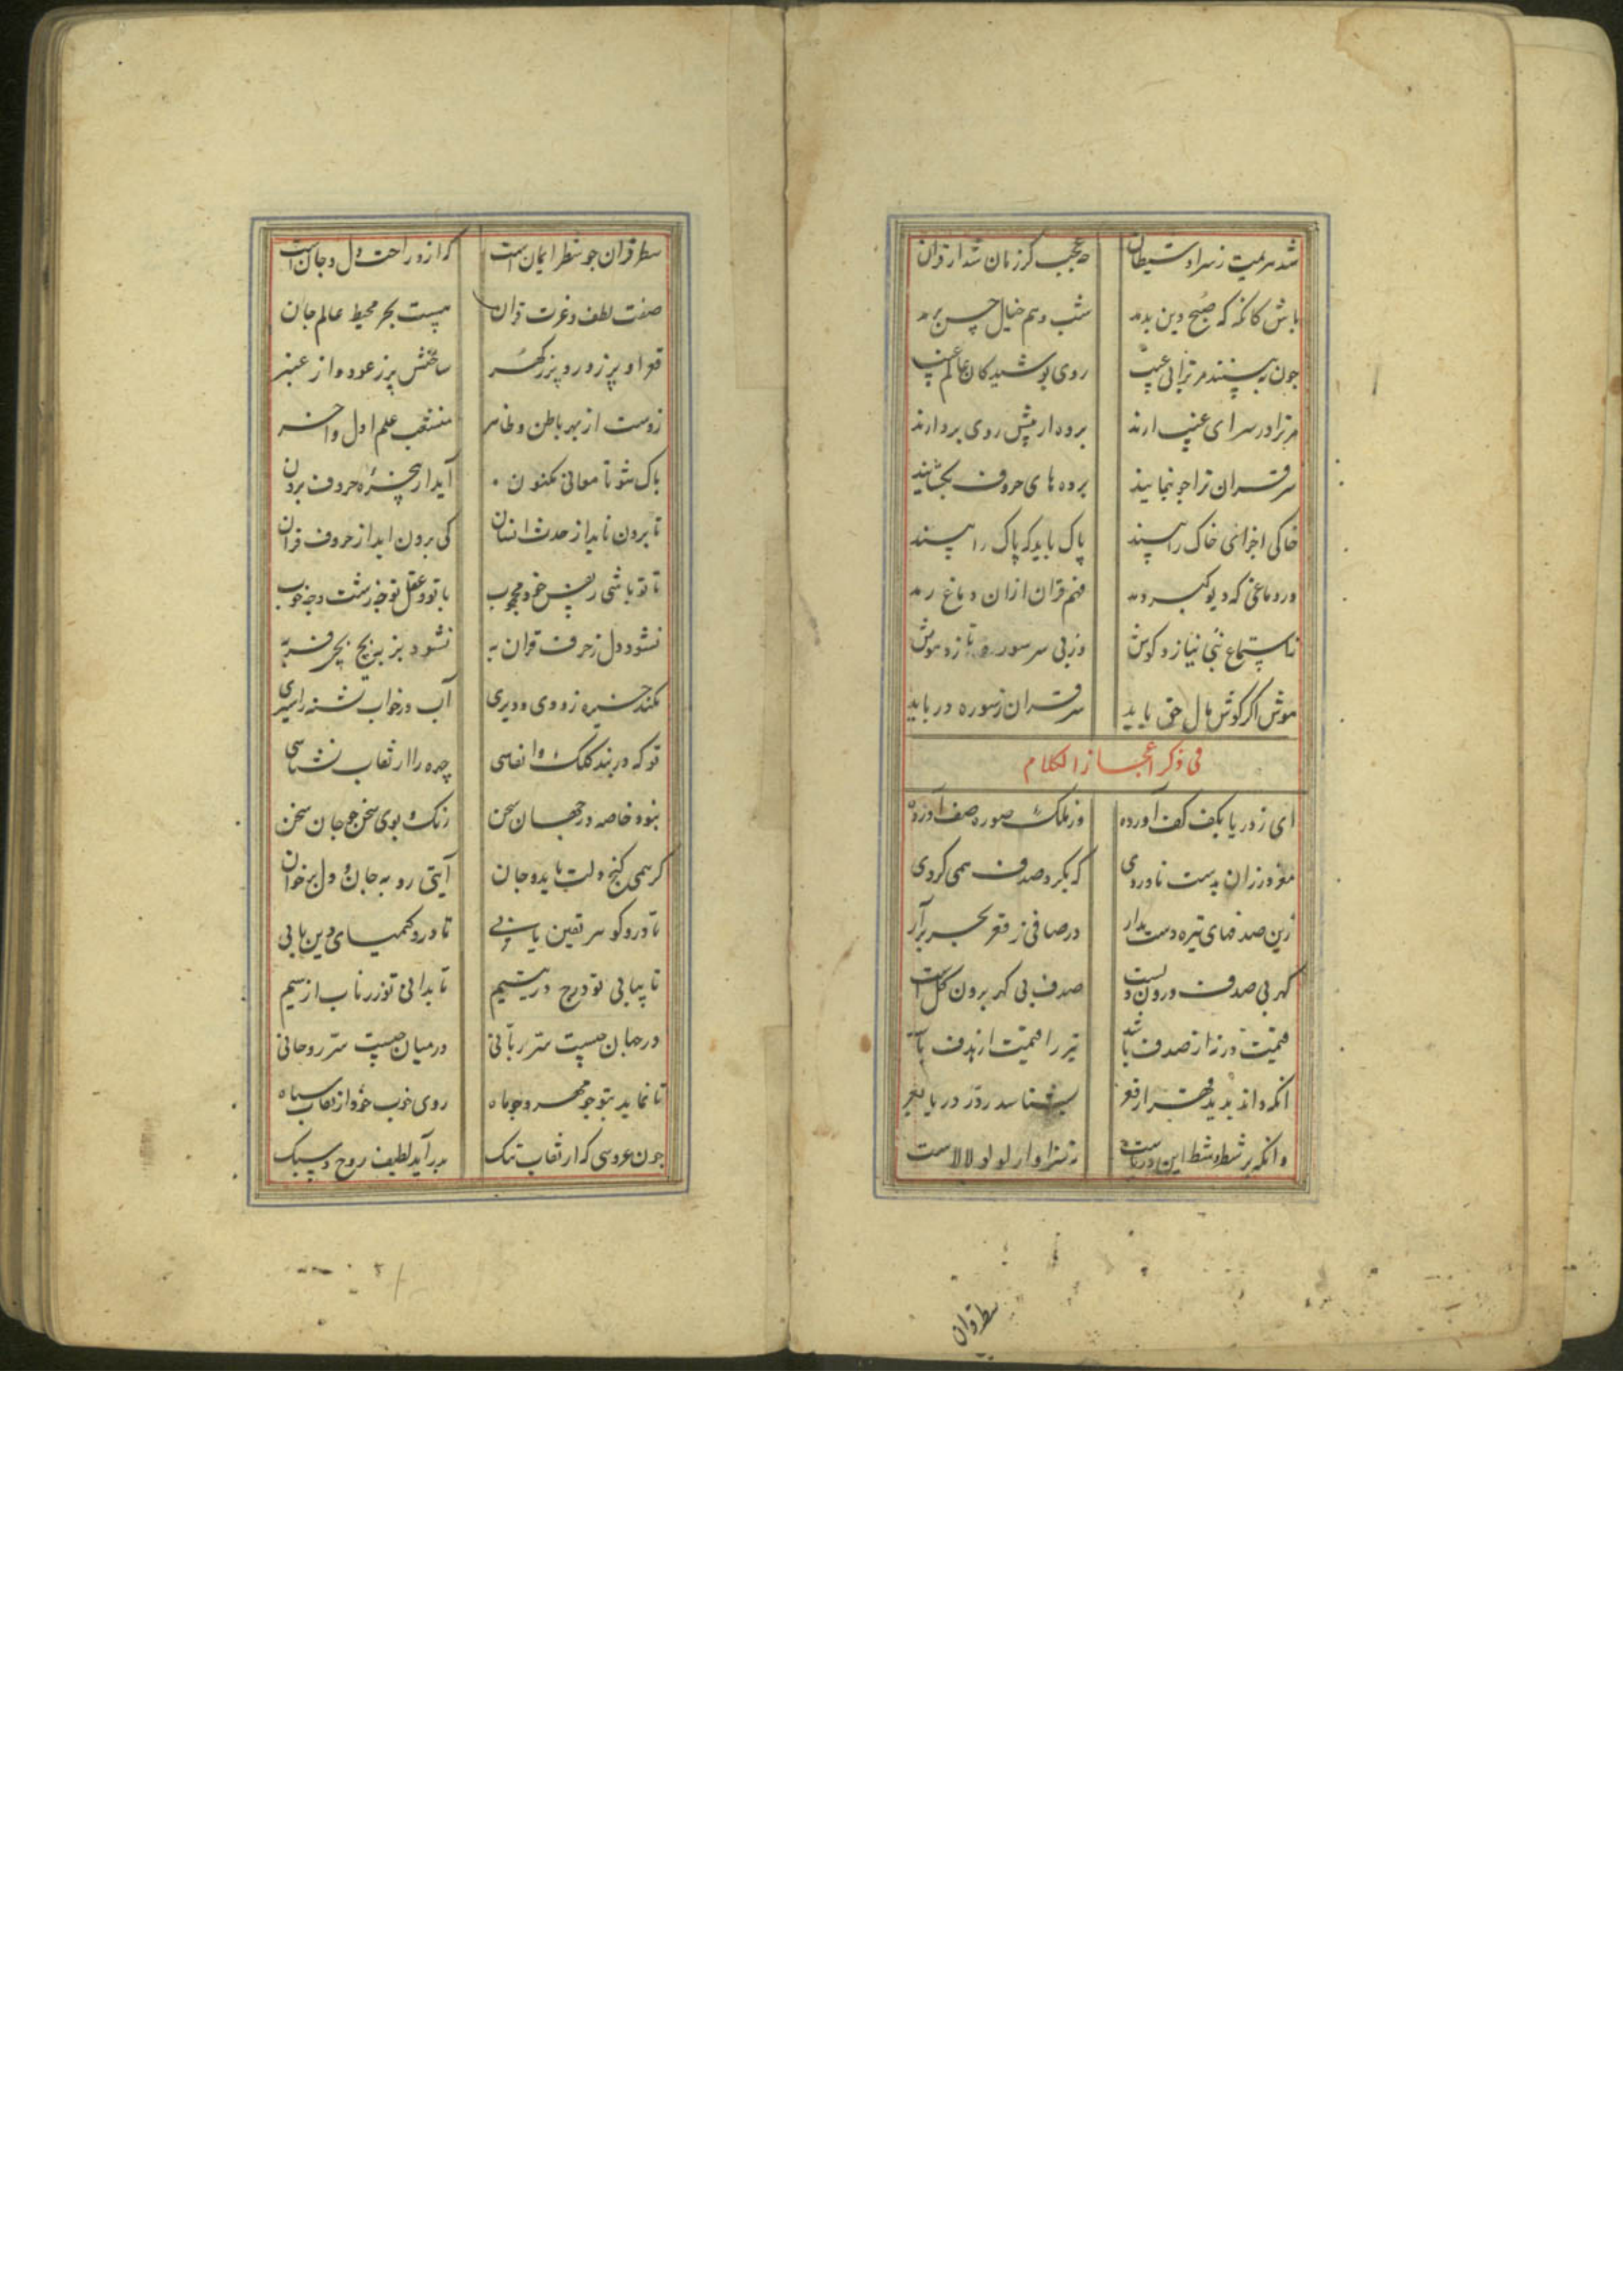 شد هزیمت ز سر او شیطان چه عجب کر زمان شد از قران
باش کانکه که صبح دین بدمد شب وهم خیال حس برمد
چون به بینند مر ترا بی عیب روی پوشیدکان عالم غیب
مر ترا در سرای غیب ارند پرده از پیش روی بردارند
سر قران ترا چو بنمایند پرده های حروف بکشایند
خاکی اجزای خاک را بیند پاک باید که پاک را بیند
در دماغی که دیو کبر دمد فهم قران ازان دماغ رمد
ز استماع نبی نیازد کوش وز پی سر سوره نازد هوش
هوش اکر کوشمال حق یابد سر قران ز سوره دریابد
فی ذکر اعجاز الکلام
ای ز دریا بکف کف آورده وز ملک صوره صف آورده
مغز در زان بدست ناوردی که بکرد صدف همی کردی
زین صدفهای تیره دست بدار در صافی ز قعر بحر برآر
کهر بی صدف درون دلست صدف بی کهر برون کلست
قیمت در نز از صدف باشد تیر را قیمت از هدف باشد
انکه داند بدید قعر از قعر بشناسد ز در دریا بعر
وانکه بر شط و شط این دریاست نه سزاوار لولو لالاست
سطر قران چو شطر ایمان است که ازو راحت دل و جان است
صفت لطف و عزت قران هست بحر محیط عالم جان
قعر او پر ز در و پر ز کهر ساحلش پر ز عود و از عنبر
زوست از بهر باطن و ظاهر منشعب علم اول و اخر
پاک شو تا معانی مکنون آید از پنجره حروف برون
تا برون ناید از حدث انسان کی برون اید از حروف قران
تا تو باشی ز نفس خود محجوب با تو و عقل تو چه زشت و چه خوب
نشود دل ز حرف قران به نشود بز به بچ بچی فربه
نکند خیره زودی و دیری آب در خواب تشنه را سیری
تو که در بند کلک و انفاسی چهره را از نقاب نشناسی
بود خاصه در جهان سخن رنک و بوی سخن چو جان سخن
کر همی کنج دلت باید و جان آیتی رو به جان و دل برخوان
تا درو کوهر یقین یابی تا درو کیمیای دین یابی
تا بیابی تو درج در یتیم تا بدانی تو زر ناب از سیم
در جهان چیست سر ربانی در میان چیست سر روحانی
تا نماید بتو چو مهر و چو ماه روی خوب خود از نقاب سیاه
چون عروسی که از نقاب تنک بدر آید لطیف روح و سبک
سطر قران